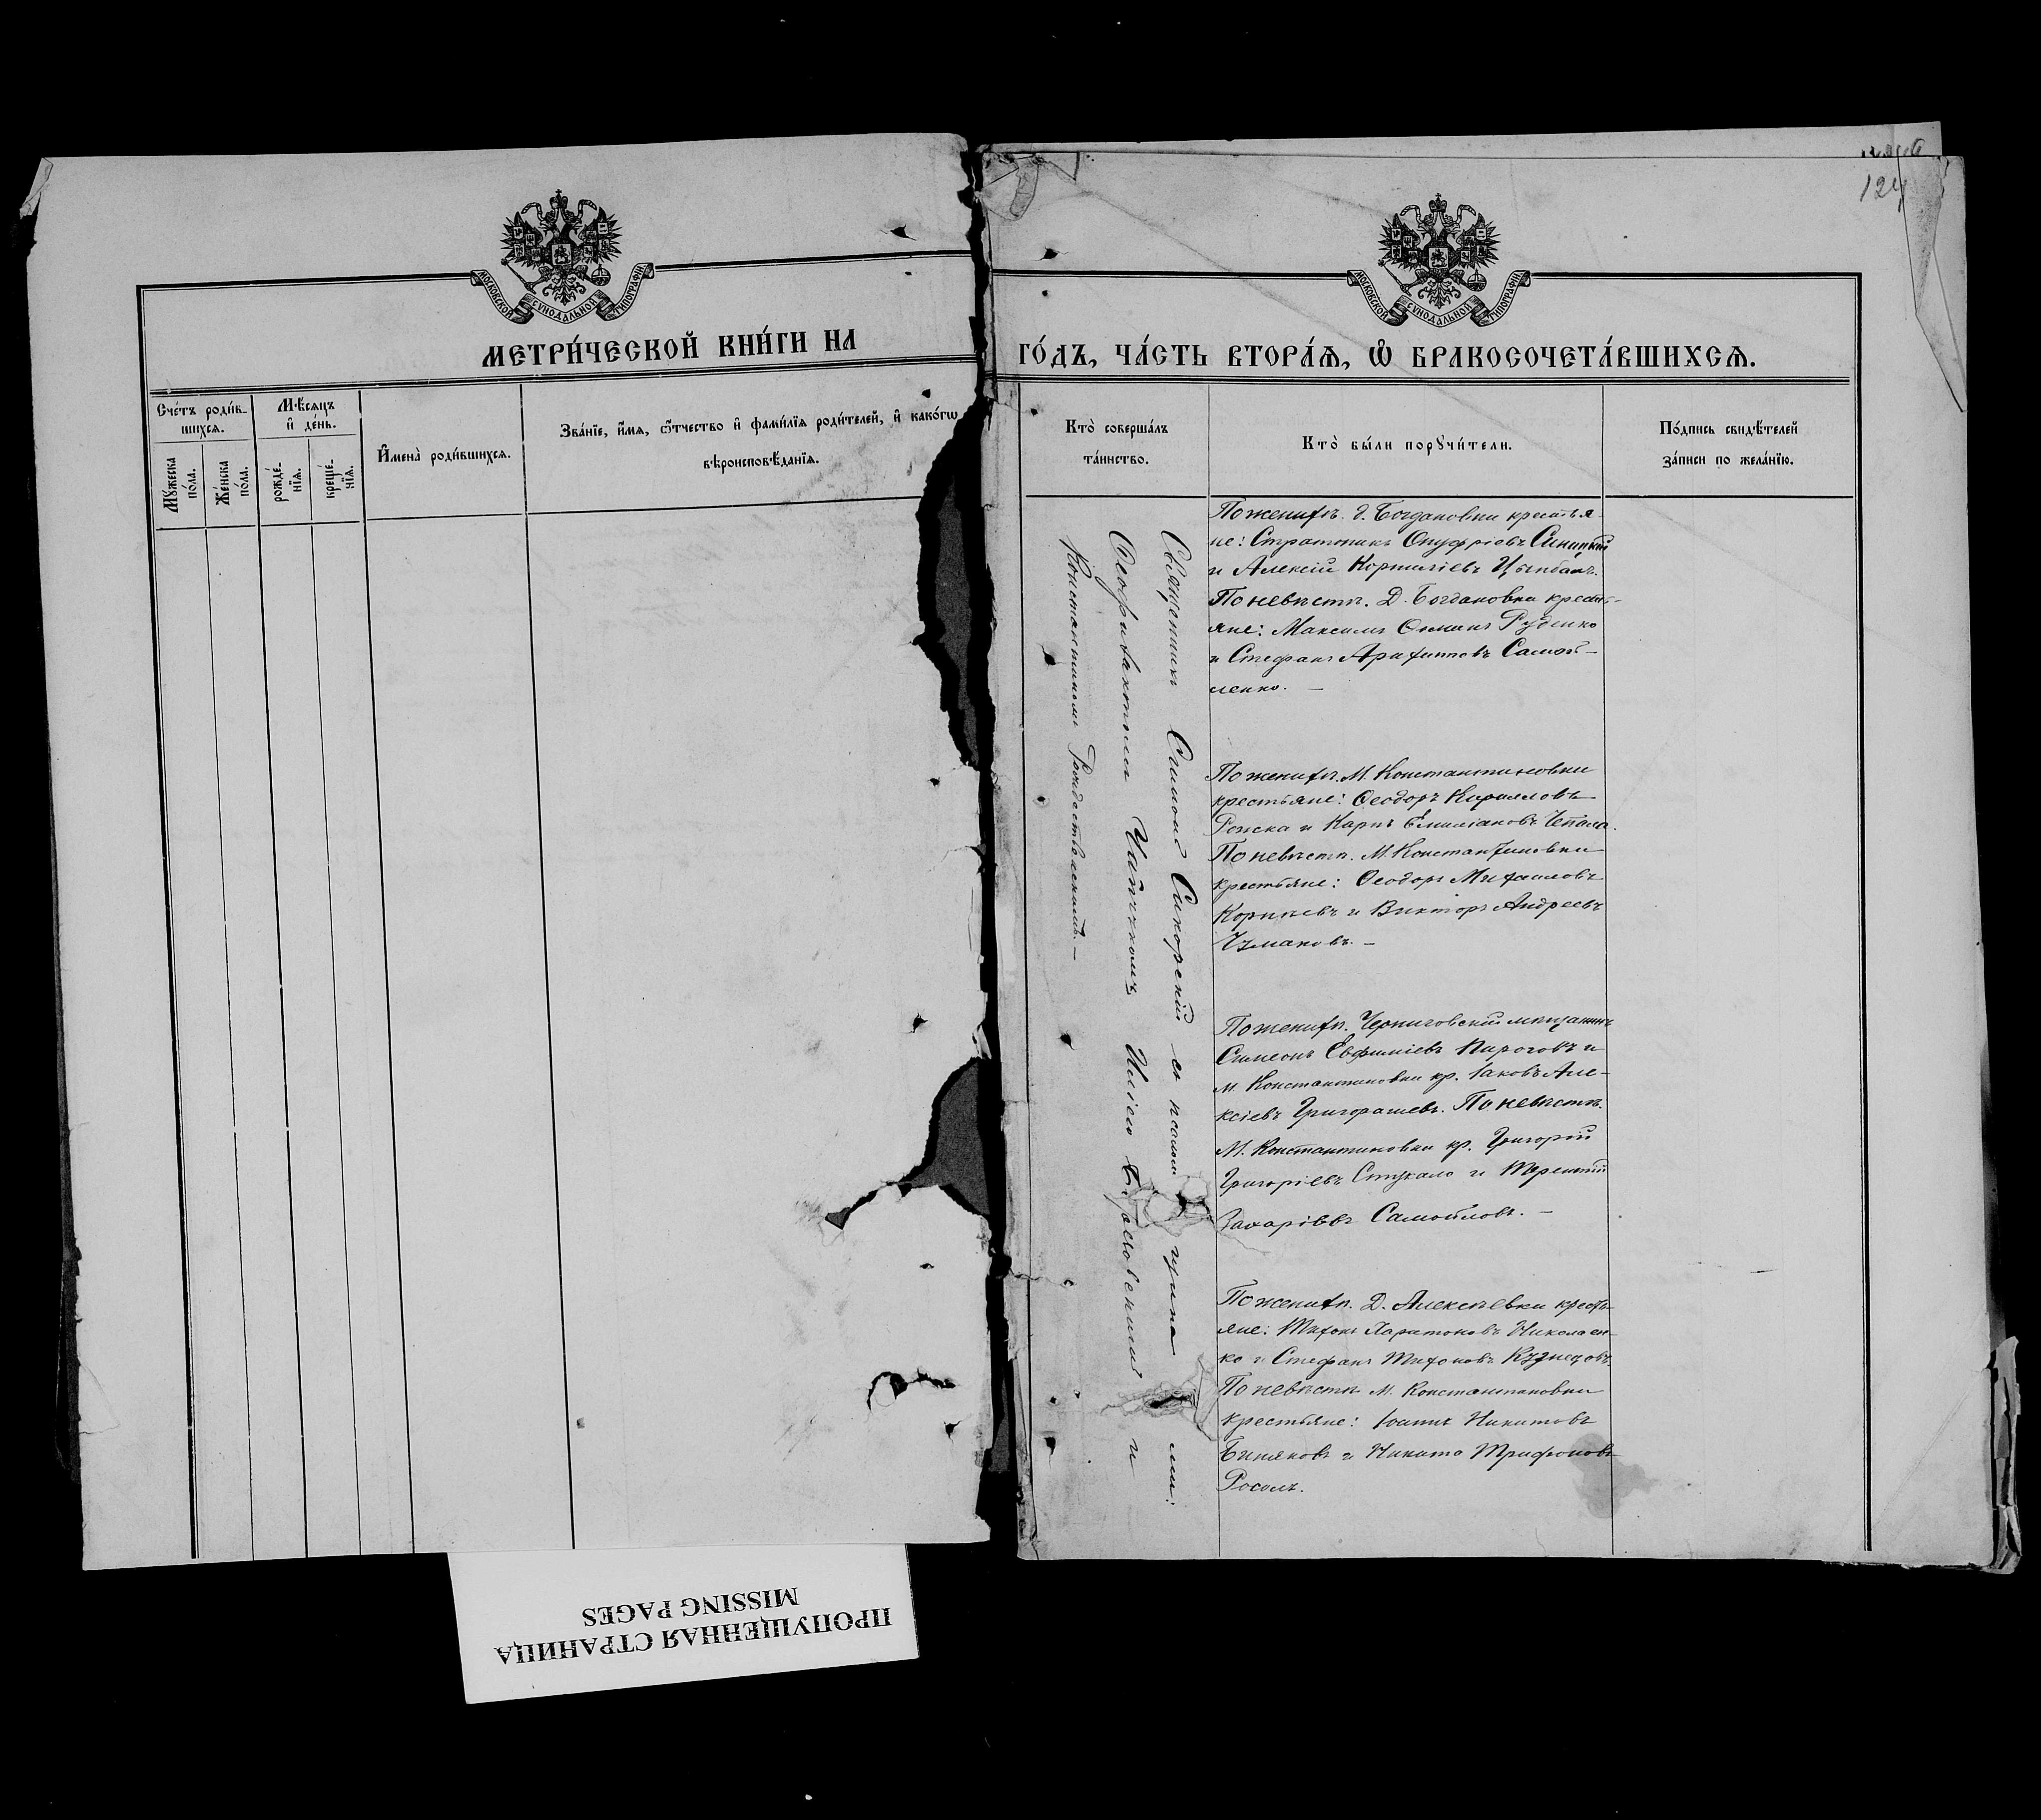 124
МОСКОВСКОЙ СѴНОДАЛЬНОЙ ТИПОГРАФІИ
МЕТРИ́ЧЕСКОЙ КНИ́ГИ НА
Сче́тъ роди́в-
шихсѧ.
Мѣ́сѧцъ
и҆ де́нь.
Мꙋ́жеска
по́ла.
Же́нска
по́ла.
рожде́-
нїѧ.
креще́-
нїѧ.
И҆мена̀ роди́вшихсѧ.
Зва́нїе, и҆́мѧ, ѻ҆́тчество и҆ фами́лїѧ роди́телей, и҆ како́гѡ
вѣроисповѣ́данїѧ.
МОСКОВСКОЙ СѴНОДАЛЬНОЙ ТИПОГРАФІИ
ГО́ДЪ, ЧА́СТЬ ВТОРА́Ѧ, Ѽ БРАКОСОЧЕТА́ВШИХСѦ.
Кто̀ соверша́лъ
та́инство.
Кто̀ бы́ли порꙋчи́тели.
По́дпись свидѣ́телей
за́писи по жела́нїю.
Священникъ Симонъ Сикорскій съ псалом щика ми:
Ѳеофилактомъ Чайчкомъ Иліею Благовенскій и
Константиномъ Рождественскимъ. —
По женихѣ. д. Богдановки крестья-
не: Стратоникъ Онуфріевъ Синицкій
и Алексій Корниліевъ Цымбалъ.
По невѣстѣ. Д. Богдановки кресть-
яне: Максимъ Ѳоминъ Руденко
и Стефанъ Архиповъ Самой-
ленко. —
По женихѣ. М. Константиновки
крестьяне: Ѳеодоръ Кирилловъ
Рожка и Карпъ Емиліановъ Чепала.
По невѣстѣ. М. Константиновки
крестьяне: Ѳеодоръ Михаиловъ
Корнѣевъ и Викторъ Андреевъ
Чумаковъ. —
По женихѣ. Черниговскій мѣщанинъ
Симеонъ Евфиміевъ Пироговъ и
м. Константиновки кр. Іаковъ Але-
ксіевъ Григорашевъ. По невѣстѣ.
М. Константиновки кр. Григорій
Григоріевъ Стукало и Терентій
Захаріевъ Самойловъ. —
По женихѣ. Д. Алексѣевки кресть-
яне: Тихонъ Харитоновъ Николаен-
ко и Стефанъ Тихоновъ Кузнецовъ
По невѣстѣ М. Константиновки
крестьяне: Іоаннъ Никитовъ
Битяковъ и Никита Трифоновъ
Росолъ.
ПРОПУЩЕННАЯ СТРАНИЦА
MISSING PAGES